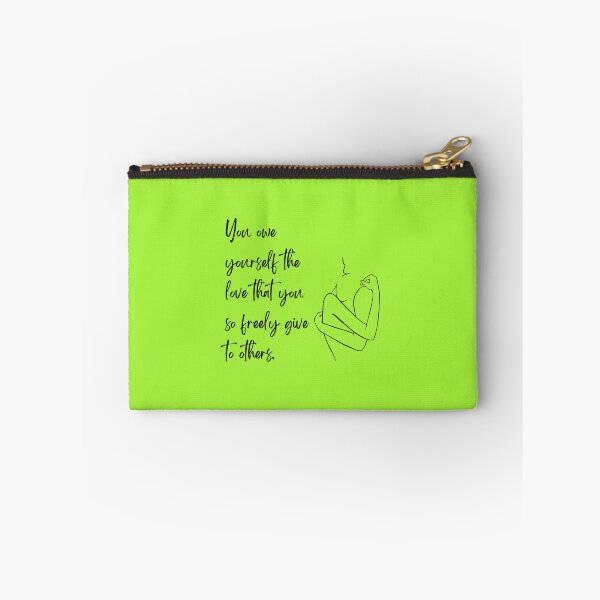 You owe
yourself the
love that you
so freely give
to others.